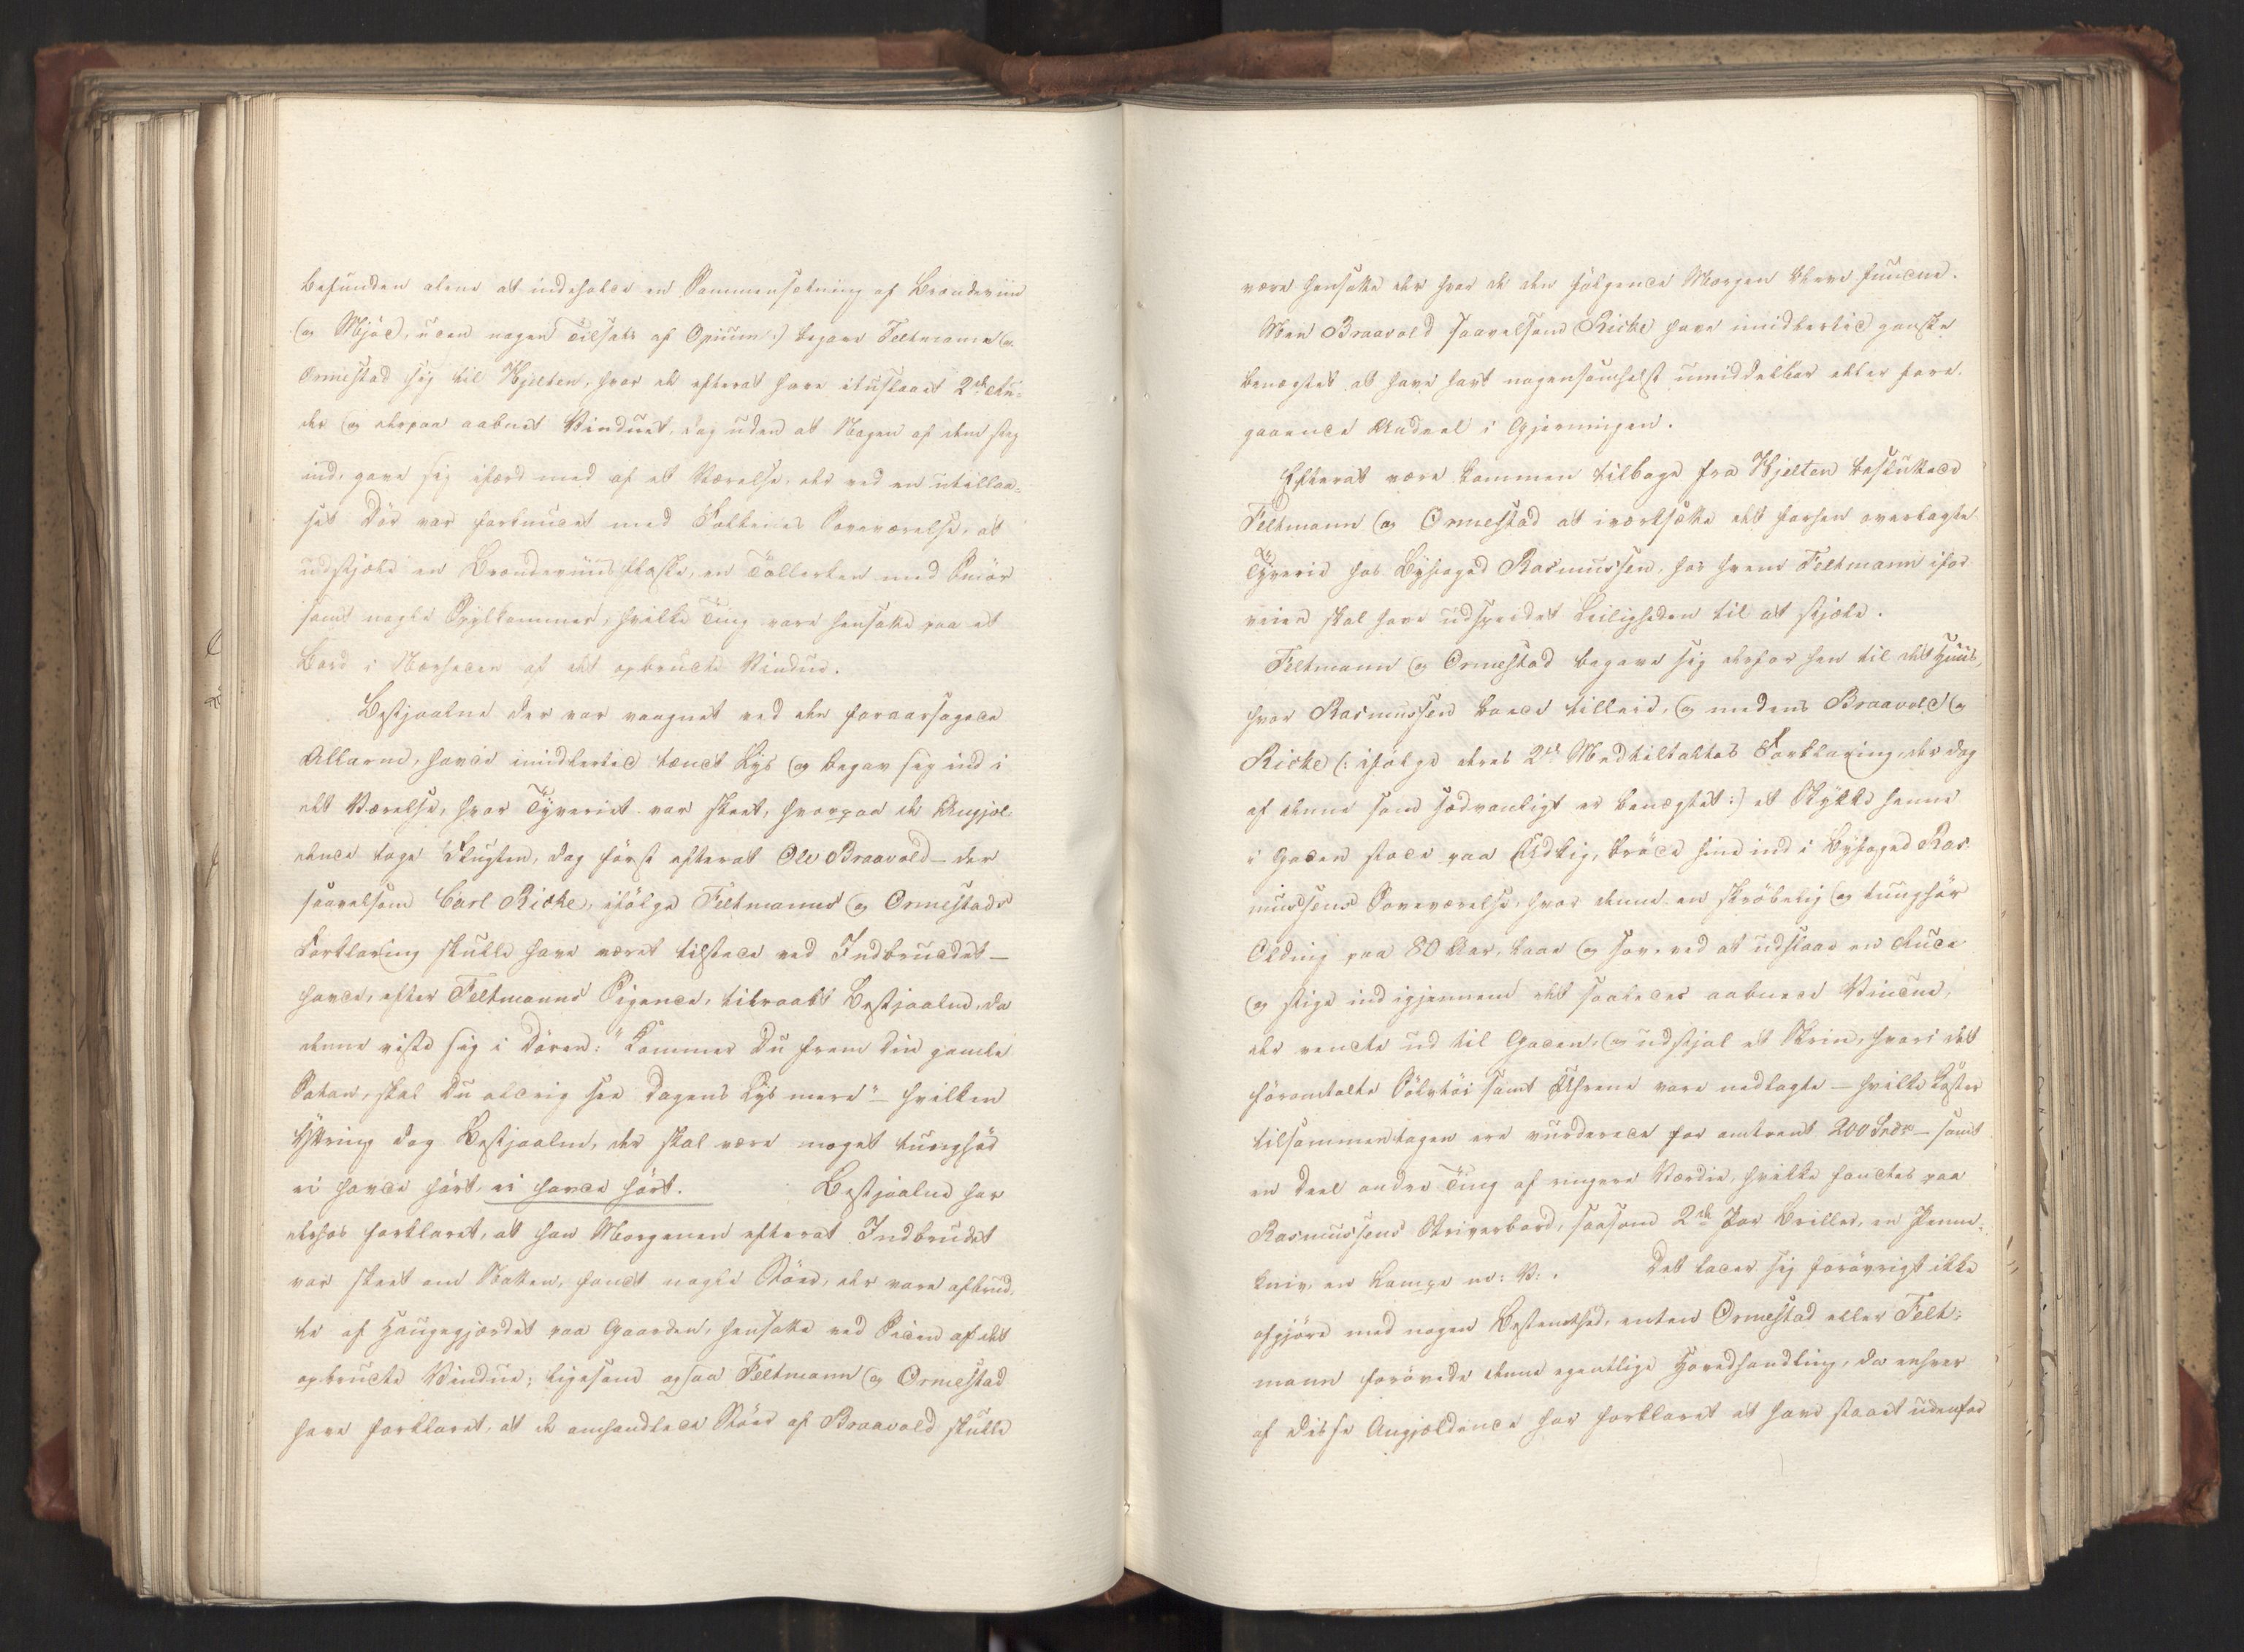 befunden alene at indeholde en Sammensætning af Brændeviin
(og Mjød, uden nogen Tilsats af Opium:) begave Feltmann og
Ormestad sig til Hjelten, hvor de efterat have ituslaaet 2de Ru-
der og derpaa aabnet Vinduet, dog uden at Nogen af dem steg
ind, gave sig ifærd med af et Værelse, der ved en utillaa-
set Dör var forbundet med Folkenes Soveværelse, at
udstjæle en Brændeviinsflaske, en Tallerken med Smör
samt nogle Sylkommer, hvilke Ting vare hensatte paa et
Bord i Nærheden af det opbrudte Vindue.
Bestjaalne der var vaagnet ved den foraarsagede
Allarm, havde imidlertid tændt Lys og begav sig ind i
det Værelse, hvor Tyveriet var skeet, hvorpaa de Angjæl-
dende toge Flugten, dog först efterat Ole Braavold – der
saavelsom Carl Ricke, ifölge Feltmanns og Ormestads
Forklaring skulle have været tilstede ved Indbruddet –
havde, efter Feltmanns Sigende, tilraabt Bestjaalne, da
denne viste sig i Dören: "Kommer Du frem din gamle
Satan, skal Du aldrig see Dagens Lys mere" – hvilken
Yttring dog Bestjaalne, der skal være noget tunghör
ei havde hört, ei havde hört. Bestjaalne har
derhos forklaret, at han Morgenen efterat Indbrudet
var skeet om Natten, fandt nogle Stöer, der vare afbrud-
te af Haugegjærdet paa Gaarden, hensatte ved Siden af det
opbrudte Vindue; ligesom ogsaa Feltmann og Ormestad
have forklaret, at de omhandlede Stöer af Braavold skulle
være hensatte der hvor de den fölgende Morgen bleve fundne.
Men Braavold saavelsom Ricke have imidlertid ganske
benægtet at have havt nogensomhelst umiddelbar eller fore-
gaaende Andeel i Gjerningen.
Efterat være kommen tilbage fra Hjelten besluttede
Feltmann og Ormestad at iværksætte det forhen overlagte
Tyverie hos Byfoged Rasmussen, hos hvem Feltmann ifor-
veien skal have udspeidet Leiligheden til at stjæle.
Feltmann og Ormestad begave sig derfor hen til det Huus,
hvor Rasmussen boede tilleie, og medens Braavold og
Ricke (: ifölge deres 2de Medtiltaltes Forklaring, der dog
af denne som sædvanligt er benægtet:) et Stykke henne
i Gaden stode paa Udkig, bröde hine ind i Byfoged Ras-
mussens Soveværelse, hvor denne en skröbelig og tunghör
Olding paa 80 Aar, laae og sov, ved at udslaae en Rude
og stige ind igjennem det saaledes aabnede Vindue,
der vendte ud til Gaden, og udstjal et Skrin, hvori det
foromtalte Sölvtöi samt Uhrene vare nedlagte – hvilke Koster
tilsammentagen ere vurderede for omtrent 200 Spdr – samt
en Deel andre Ting af ringere Værdie, hvilke fandtes paa
Rasmussens Skriverbord, saasom 2de Par Briller, en Penne-
kniv, en Lampe m: V: . Det lader sig forövrigt ikke
afgjöre med nogen Bestemthed, enten Ormestad eller Felt-
mann forövede denne egentlige Hovedhandling, da enhver
af disse Angjældende har forklaret at have staaet udenfor